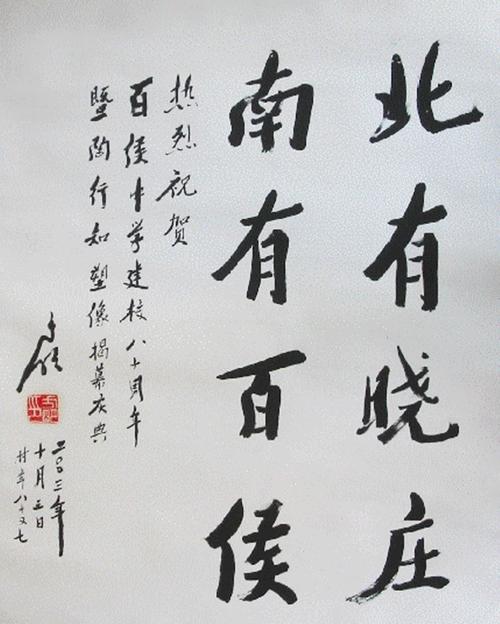 北有晓庄
南有百侯
热烈祝贺
百侯中学建校八十周年
暨陶行知塑像揭幕庆典
二〇〇三年
十月五日
时年八十又七